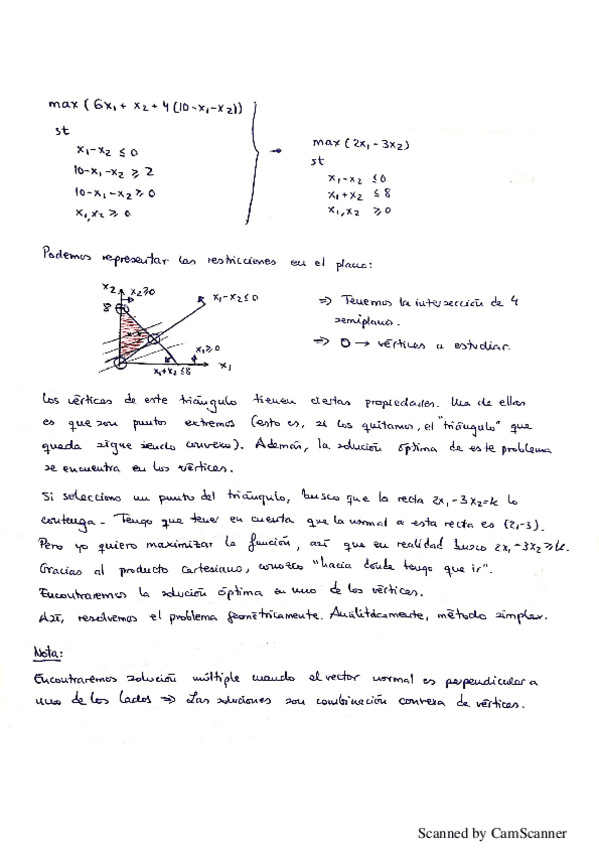 max (6x₁ + x₂ + 4(10-x₁-x₂))
st
x₁-x₂ ≤ 0
10-x₁-x₂ ≥ 2
10-x₁-x₂ ≥ 0
x₁,x₂ ≥ 0
→
max (2x₁ - 3x₂)
st
x₁-x₂ ≤ 0
x₁+x₂ ≤ 8
x₁,x₂ ≥ 0
Podemos representar las restricciones en el plano:
x₂ x₂≥0
8
x₁-x₂≤0
x₁≥0
x₁
x₁+x₂≤8
⇒ Tenemos la intersección de 4
semiplanos.
⇒ O → vértices a estudiar.
Los vértices de este triángulo tienen ciertas propiedades. Una de ellas
es que son puntos extremos (esto es, si los quitamos, el "triángulo" que
queda sigue siendo convexo). Además, la solución óptima de este problema
se encuentra en los vértices.
Si selecciono un punto del triángulo, busco que la recta 2x₁-3x₂=k lo
contenga. Tengo que tener en cuenta que la normal a esta recta es (2,-3).
Pero yo quiero maximizar la función, así que en realidad busco 2x₁-3x₂≥k.
Gracias al producto cartesiano, conozco "hacia dónde tengo que ir".
Encontraremos la solución óptima en uno de los vértices.
Así, resolvemos el problema geométricamente. Analíticamente, método simplex.
Nota:
Encontraremos solución múltiple cuando el vector normal es perpendicular a
uno de los lados ⇒ Las soluciones son combinación convexa de vértices.
Scanned by CamScanner